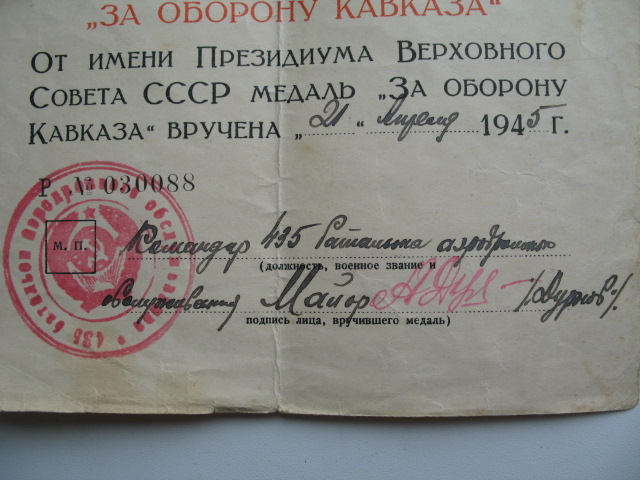 „ЗА ОБОРОНУ КАВКАЗА“
От имени Президиума Верховного
Совета СССР медаль „За оборону
Кавказа“ вручена „21“ Апреля 1945 г.
Р № 030088
м. п.
Командир 435 батальона аэродромного
(должность, военное звание и
обслуживания Майор
подпись лица, вручившего медаль)
435 батальон аэродромного обслуживания